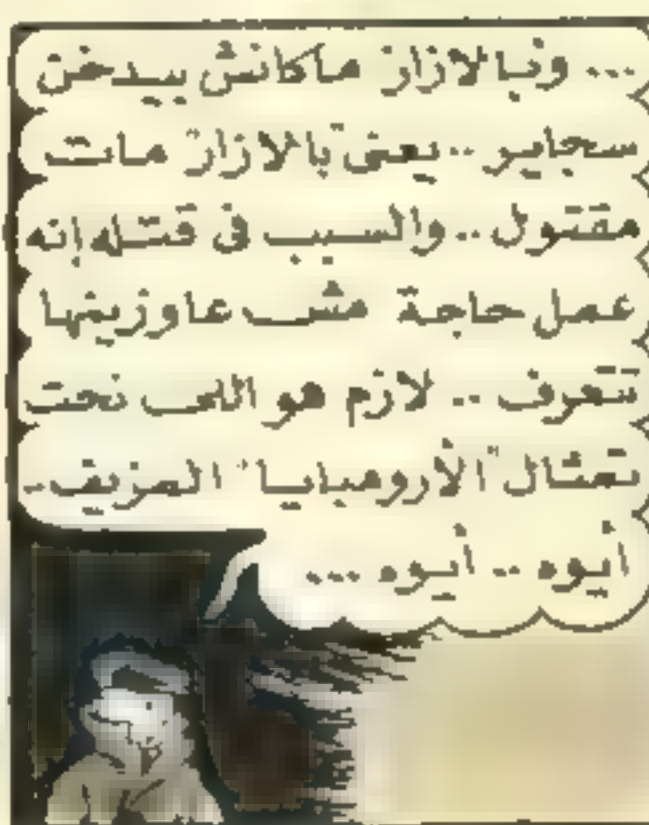 ... وبالازار ماكانش بيدخن
سجاير .. يعنى "بالازار" مات
مقتول .. والسبب فى قتله إنه
عمل حاجة مش عاوزينها
تتعرف .. لازم هو اللى نحت
تمثال "الأرومبايا" المزيف..
أيوه .. أيوه ...